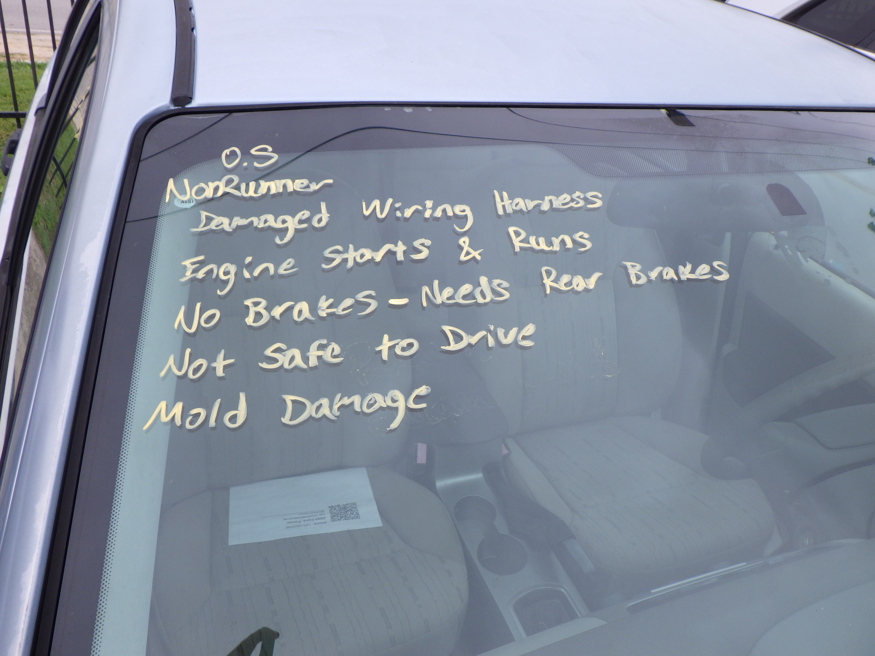 O.S
NonRunner
Damaged Wiring Harness
Engine Starts & Runs
No Brakes - Needs Rear Brakes
Not Safe to Drive
Mold Damage